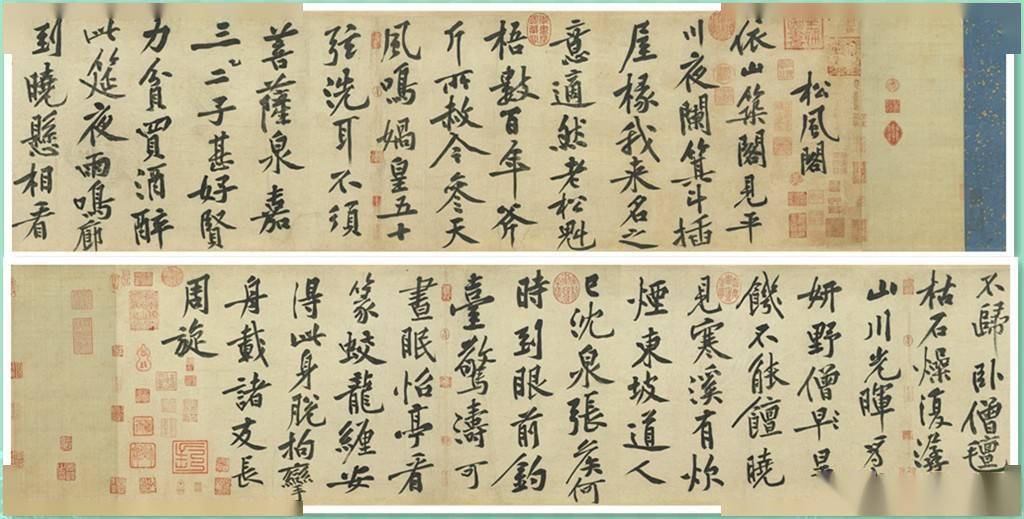 松風閣
依山築閣見平
川夜闌箕斗插
屋椽我来名之
意適然老松魁
梧數百年斧
斤所赦今參天
風鳴媧皇五十
弦洗耳不須
菩薩泉嘉
三二子甚好賢
力貧買酒醉
此筵夜雨鳴廊
到曉懸相看
不歸卧僧氈
枯石燥復潺
山川光暉為
妍野僧早旱
饑不能饘曉
見寒溪有炊
煙東坡道人
已沈泉張侯何
時到眼前釣
臺驚濤可
晝眠怡亭看
篆蛟龍纏安
得此身脫拘攣
舟載諸友長
周旋